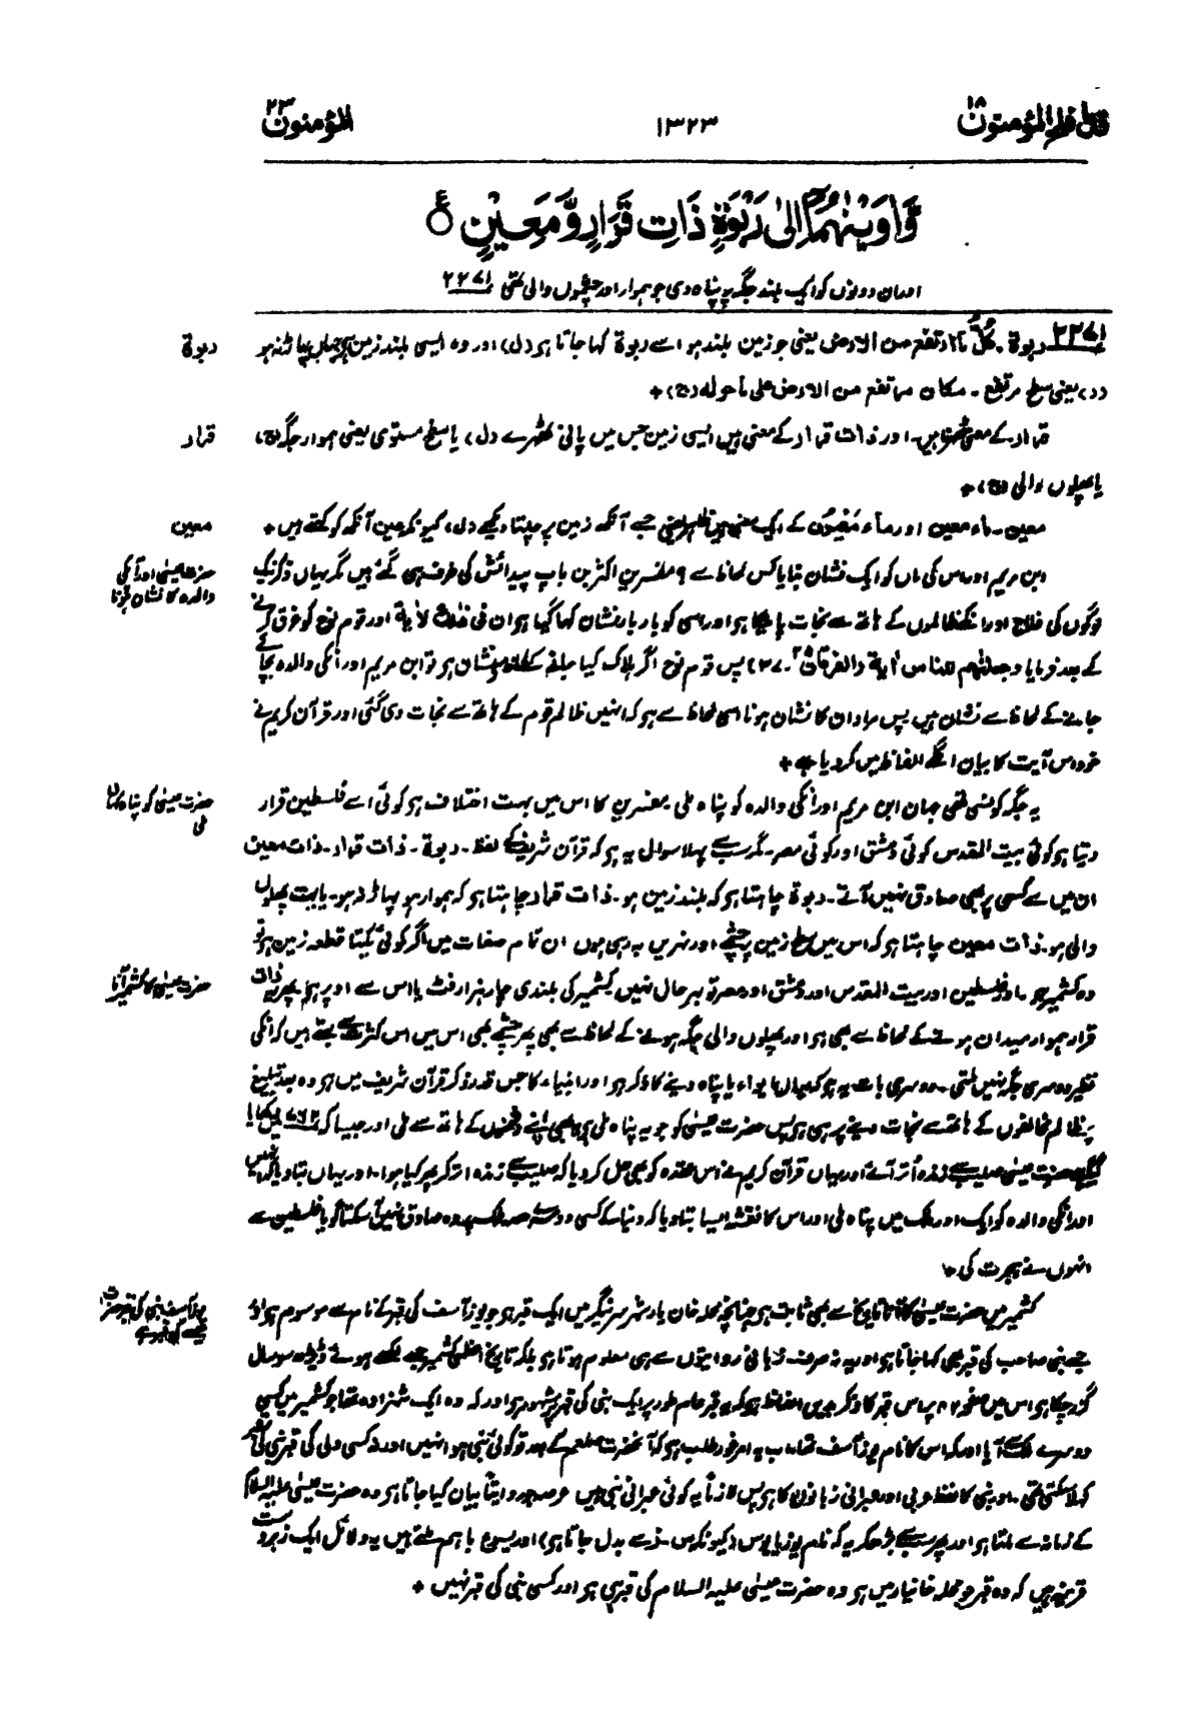 قد افلح المؤمنون ۱۸
۱۳۲۳
المؤمنون ۲۳
وَّاٰوَيْنٰهُمَآ اِلٰى رَبْوَةٍ ذَاتِ قَرَارٍ وَّمَعِيْنٍ ۝ ع
اور ان دونوں کو ایک بلند جگہ پر پناہ دی جو ہموار اور چشموں والی تھی ۲۲۷۱
ربوۃ
۲۲۷۱ ربوۃ ۔ کُلُّ ما ارتفع من الارض یعنی جو زمین بلند ہو اسے ربوۃ کہا جاتا ہو (ل) اور وہ ایسی بلند زمین ہو جہاں پہاڑ نہ ہو
(د) یعنی سطح مرتفع ۔ مکان مرتفع من الارض علی ما حولہ (ج) +
قرار
قرار کے معنی ٹھہرنا ہیں ۔ اور ذات قرار کے معنی ہیں ایسی زمین جس میں پانی ٹھہرے (ل) یا سطح مستوی یعنی ہموار جگہ (ج)
یا پھلوں والی (ج) +
معین
معین ۔ ماء معین اور ماء مَعْیُون کے ایک معنی ہیں ظاہر یعنی جسے آنکھ زمین پر چلتا دیکھے (ل) کیونکہ عین آنکھ کو کہتے ہیں +
حضرت عیسیٰ اور آپ کی
والدہ کا نشان ہونا
ابن مریم اور اس کی ماں کو ایک نشان بنایا کس لحاظ سے ؟ مفسرین اکثر بن باپ پیدائش کی طرف ہی گئے ہیں مگر یہاں ذکر نیک
لوگوں کی فلاح اور انکے ظالموں کے ہاتھ سے نجات پانے کا ہو اور اسی کو بار بار نشان کہا گیا ہو ان فی ذلک لاٰیۃ اور قوم نوح کو غرق کرنے
کے بعد فرمایا وجعلنٰھم للناس اٰیۃ (الفرقان ۔ ۳۷) پس قوم نوح اگر ہلاک کیا جانے کے لحاظ سے نشان ہو تو ابن مریم اور انکی والدہ بچائے
جانے کے لحاظ سے نشان ہیں پس مراد ان کا نشان ہونا اسی لحاظ سے ہو کہ انہیں ظالم قوم کے ہاتھ سے نجات دی گئی اور قرآن کریم نے
خود اس آیت کا بیان اگلے الفاظ میں کر دیا ہے +
حضرت عیسیٰ کو پناہ کہاں
ملی
یہ جگہ کونسی تھی جہاں ابن مریم اور انکی والدہ کو پناہ ملی مفسرین کا اس میں بہت اختلاف ہو کوئی اسے فلسطین قرار
دیتا ہو کوئی بیت المقدس کوئی دمشق اور کوئی مصر ۔ مگر سب سے پہلا سوال یہ ہو کہ قرآن شریف کے لفظ ۔ ربوۃ ۔ ذات قرار ۔ ذات معین
ان میں سے کسی پر بھی صادق نہیں آتے ۔ ربوۃ چاہتا ہو کہ بلند زمین ہو ۔ ذات قرار چاہتا ہو کہ ہموار ہو پہاڑ نہ ہو ۔ یا بہت پھلوں
والی ہو ۔ ذات معین چاہتا ہو کہ اس میں سطح زمین پر چشمے اور نہریں بہ رہی ہوں ان تمام صفات میں اگر کوئی یکتا قطعہ زمین ہو تو
حضرت عیسیٰ کا کشمیر آنا
وہ کشمیر ہو ۔ اور فلسطین اور بیت المقدس اور دمشق اور مصر تو بہرحال نہیں کشمیر کی بلندی چار ہزار فٹ یا اس سے اوپر ہو پھر یہ ذات
قرار ہموار میدان ہونے کے لحاظ سے بھی ہو اور پھلوں والی جگہ ہونے کے لحاظ سے بھی پھر چشمے بھی اس میں اس کثرت سے بہتے ہیں کہ انکی
نظیر دوسری جگہ نہیں ملتی ۔ دوسری بات یہ ہو کہ یہاں ایواء یا پناہ دینے کا ذکر ہو اور انبیاء کا جس قدر ذکر قرآن شریف میں ہو وہ بعد تبلیغ
پر ظالم مخالفوں کے ہاتھ سے نجات دینے پر ہی ہو پس حضرت عیسیٰ کو جو یہ پناہ ملی ہو یہ بھی اپنے دشمنوں کے ہاتھ سے ملی اور جیسا کہ میں لکھا
گیا ہے حضرت عیسیٰ صلیب سے زندہ اتر آئے اور یہاں قرآن کریم نے اس عقدہ کو بھی حل کر دیا کہ صلیب سے زندہ اتر کر پھر کیا ہوا ۔ اور یہاں بتا دیا کہ انہیں
اور انکی والدہ کو ایک اور ملک میں پناہ ملی اور اس کا نقشہ ایسا بتا دیا کہ دنیا کے کسی دوسرے حصہ ملک پر وہ صادق نہیں آسکتا گویا فلسطین سے
انہوں نے ہجرت کی +
یوز آسف نبی کی قبر حضرت
عیسیٰ کی قبر ہے
کشمیر میں حضرت عیسیٰ کا آنا تاریخ سے بھی ثابت ہو چنانچہ محلہ خان یار شہر سرینگر میں ایک قبر ہو جو یوز آسف کی قبر کے نام سے موسوم ہو اور
جسے نبی صاحب کی قبر بھی کہا جاتا ہو اور یہ نہ صرف زبانی روایتوں سے ہی معلوم ہوتا ہو بلکہ تاریخ اعظمی کشمیر جسے لکھے ہوئے ڈیڑھ سو سال
گزر چکا ہو اس میں صفحہ ۸۲ پر اس قبر کا ذکر بدیں الفاظ ہو کہ یہ قبر عام طور پر ایک نبی کی قبر مشہور ہو اور کہ وہ ایک شہزادہ تھا جو کشمیر میں کسی
دوسرے ملک سے آیا اور کہ اس کا نام یوز آسف تھا ۔ اب یہ امر غور طلب ہو کہ آنحضرت صلعم کے بعد تو کوئی نبی ہوا نہیں اور نہ کسی ولی کی قبر نبی کی قبر
کہلا سکتی تھی ۔ اور نبی کا لفظ عربی اور عبرانی زبانوں کا ہو پس لازماً یہ کوئی عبرانی نبی ہیں عرصہ جو روایتاً بیان کیا جاتا ہو وہ حضرت عیسیٰ علیہ السلام
کے زمانہ سے ملتا ہو اور پھر سب سے بڑھکر یہ کہ نام یوز یا یوس (کیونکہ س ۔ ز سے بدل جاتا ہو) اور یسوع باہم ملتے ہیں یہ دلائل ایک زبردست
قرینہ ہیں کہ وہ قبر جو محلہ خانیار میں ہو وہ حضرت عیسیٰ علیہ السلام کی قبر ہی ہو اور کسی نبی کی قبر نہیں +